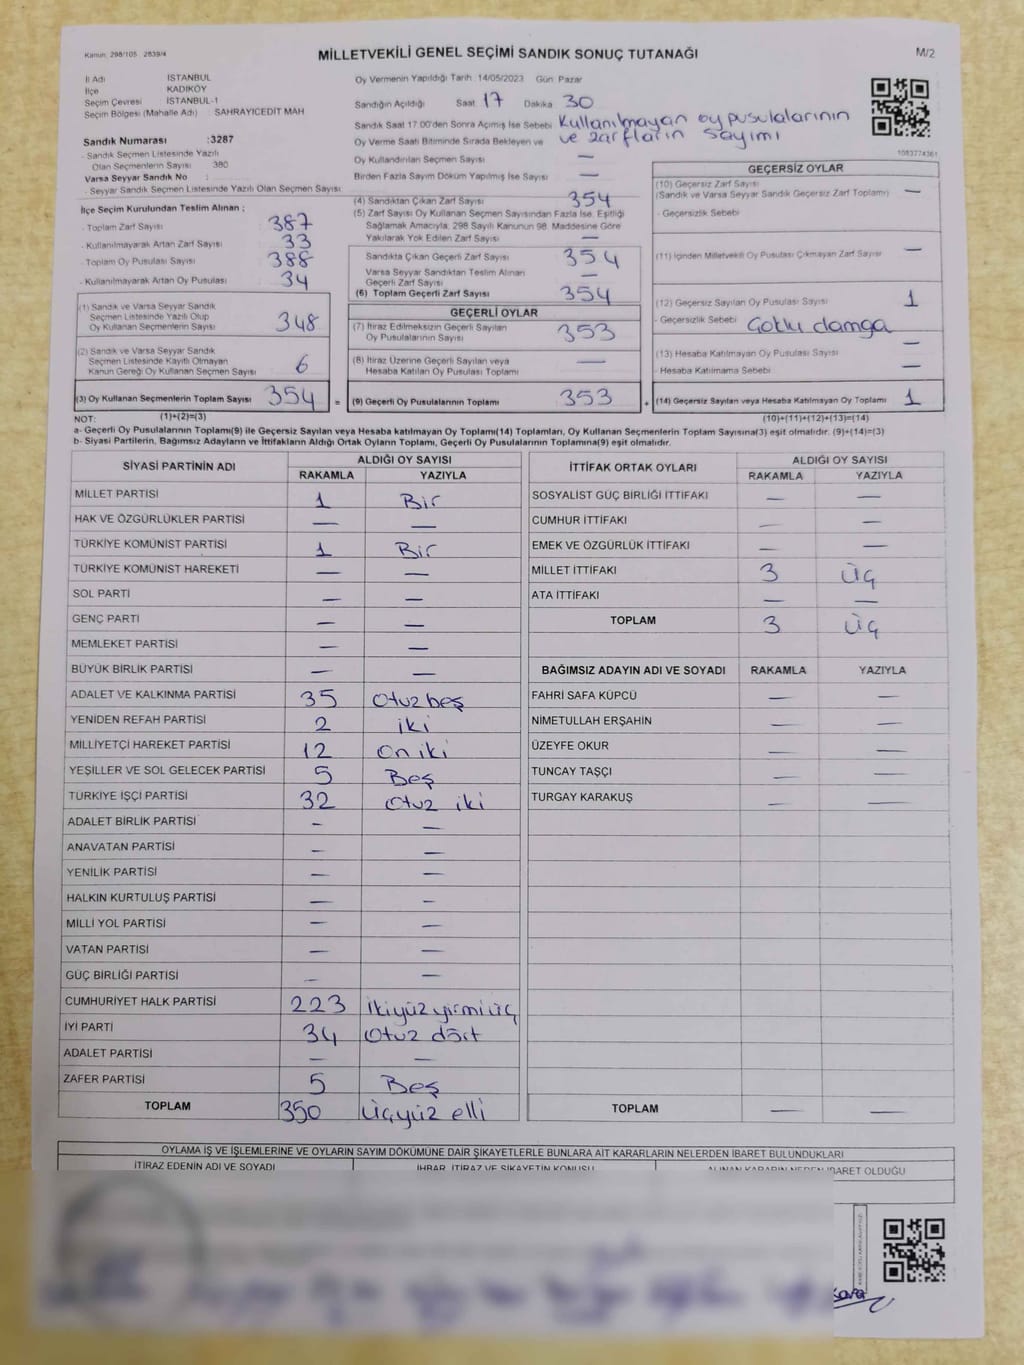 Kanun: 298/105 2839/4
MİLLETVEKİLİ GENEL SEÇİMİ SANDIK SONUÇ TUTANAĞI
M/2
İl Adı İSTANBUL
İlçe KADIKÖY
Seçim Çevresi İSTANBUL-1
Seçim Bölgesi (Mahalle Adı) : SAHRAYICEDİT MAH
Sandık Numarası :3287
- Sandık Seçmen Listesinde Yazılı
Olan Seçmenlerin Sayısı 380
Varsa Seyyar Sandık No :
- Seyyar Sandık Seçmen Listesinde Yazılı Olan Seçmen Sayısı:
Oy Vermenin Yapıldığı Tarih 14/05/2023 Gün Pazar
Sandığın Açıldığı Saat 17 Dakika 30
Sandık Saat 17:00'den Sonra Açılmış İse Sebebi Kullanılmayan oy pusulalarının
ve zarfların sayımı
Oy Verme Saati Bitiminde Sırada Bekleyen ve
Oy Kullandırılan Seçmen Sayısı —
Birden Fazla Sayım Döküm Yapılmış İse Sayısı —
1083774361
İlçe Seçim Kurulundan Teslim Alınan ;
- Toplam Zarf Sayısı 387
- Kullanılmayarak Artan Zarf Sayısı 33
- Toplam Oy Pusulası Sayısı 388
- Kullanılmayarak Artan Oy Pusulası 34
(1) Sandık ve Varsa Seyyar Sandık
Seçmen Listesinde Yazılı Olup
Oy Kullanan Seçmenlerin Sayısı 348
(2) Sandık ve Varsa Seyyar Sandık
Seçmen Listesinde Kayıtlı Olmayan
Kanun Gereği Oy Kullanan Seçmen Sayısı 6
(3) Oy Kullanan Seçmenlerin Toplam Sayısı 354 =
(4) Sandıktan Çıkan Zarf Sayısı 354
(5) Zarf Sayısı Oy Kullanan Seçmen Sayısından Fazla İse, Eşitliği
Sağlamak Amacıyla, 298 Sayılı Kanunun 98. Maddesine Göre
Yakılarak Yok Edilen Zarf Sayısı —
Sandıkta Çıkan Geçerli Zarf Sayısı 354
Varsa Seyyar Sandıktan Teslim Alınan
Geçerli Zarf Sayısı —
(6) Toplam Geçerli Zarf Sayısı 354
GEÇERLİ OYLAR
(7) İtiraz Edilmeksizin Geçerli Sayılan
Oy Pusulalarının Sayısı 353
(8) İtiraz Üzerine Geçerli Sayılan veya
Hesaba Katılan Oy Pusulası Toplamı —
(9) Geçerli Oy Pusulalarının Toplamı 353 +
GEÇERSİZ OYLAR
(10) Geçersiz Zarf Sayısı
(Sandık ve Varsa Seyyar Sandık Geçersiz Zarf Toplamı) —
- Geçersizlik Sebebi
(11) İçinden Milletvekili Oy Pusulası Çıkmayan Zarf Sayısı —
(12) Geçersiz Sayılan Oy Pusulası Sayısı 1
- Geçersizlik Sebebi Çoklu damga
(13) Hesaba Katılmayan Oy Pusulası Sayısı —
- Hesaba Katılmama Sebebi —
(14) Geçersiz Sayılan veya Hesaba Katılmayan Oy Toplamı 1
NOT: (1)+(2)=(3) (10)+(11)+(12)+(13)=(14)
a- Geçerli Oy Pusulalarının Toplamı(9) ile Geçersiz Sayılan veya Hesaba katılmayan Oy Toplamı(14) Toplamları, Oy Kullanan Seçmenlerin Toplam Sayısına(3) eşit olmalıdır. (9)+(14)=(3)
b- Siyasi Partilerin, Bağımsız Adayların ve İttifakların Aldığı Ortak Oyların Toplamı, Geçerli Oy Pusulalarının Toplamına(9) eşit olmalıdır.
SİYASİ PARTİNİN ADI ALDIĞI OY SAYISI
RAKAMLA YAZIYLA
MİLLET PARTİSİ 1 Bir
HAK VE ÖZGÜRLÜKLER PARTİSİ — —
TÜRKİYE KOMÜNİST PARTİSİ 1 Bir
TÜRKİYE KOMÜNİST HAREKETİ — —
SOL PARTİ — —
GENÇ PARTİ — —
MEMLEKET PARTİSİ — —
BÜYÜK BİRLİK PARTİSİ — —
ADALET VE KALKINMA PARTİSİ 35 Otuz beş
YENİDEN REFAH PARTİSİ 2 iki
MİLLİYETÇİ HAREKET PARTİSİ 12 on iki
YEŞİLLER VE SOL GELECEK PARTİSİ 5 Beş
TÜRKİYE İŞÇİ PARTİSİ 32 Otuz iki
ADALET BİRLİK PARTİSİ — —
ANAVATAN PARTİSİ — —
YENİLİK PARTİSİ — —
HALKIN KURTULUŞ PARTİSİ — —
MİLLİ YOL PARTİSİ — —
VATAN PARTİSİ — —
GÜÇ BİRLİĞİ PARTİSİ — —
CUMHURİYET HALK PARTİSİ 223 ikiyüz yirmi üç
İYİ PARTİ 34 Otuz dört
ADALET PARTİSİ — —
ZAFER PARTİSİ 5 Beş
TOPLAM 350 üçyüz elli
İTTİFAK ORTAK OYLARI ALDIĞI OY SAYISI
RAKAMLA YAZIYLA
SOSYALİST GÜÇ BİRLİĞİ İTTİFAKI — —
CUMHUR İTTİFAKI — —
EMEK VE ÖZGÜRLÜK İTTİFAKI — —
MİLLET İTTİFAKI 3 üç
ATA İTTİFAKI — —
TOPLAM 3 üç
BAĞIMSIZ ADAYIN ADI VE SOYADI RAKAMLA YAZIYLA
FAHRİ SAFA KÜPCÜ — —
NİMETULLAH ERŞAHİN — —
ÜZEYFE OKUR — —
TUNCAY TAŞÇI — —
TURGAY KARAKUŞ — —
TOPLAM — —
OYLAMA İŞ VE İŞLEMLERİNE VE OYLARIN SAYIM DÖKÜMÜNE DAİR ŞİKAYETLERLE BUNLARA AİT KARARLARIN NELERDEN İBARET BULUNDUKLARI
İTİRAZ EDENİN ADI VE SOYADI İHBAR, İTİRAZ VE ŞİKAYETİN KONUSU ALINAN KARARIN NEDEN İBARET OLDUĞU